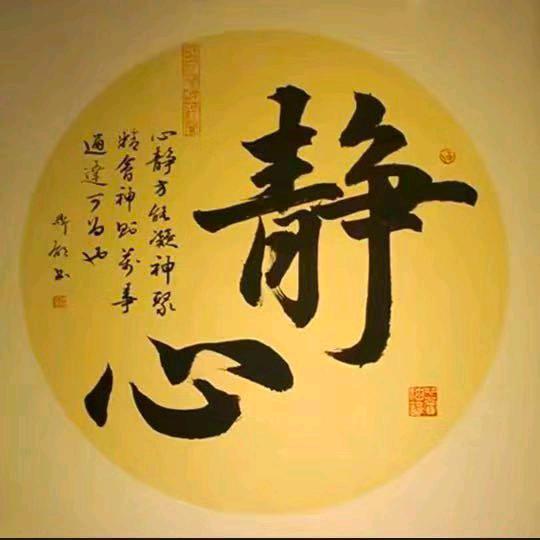 静
心
心静方能凝神聚
精会神则万事
通达可为也